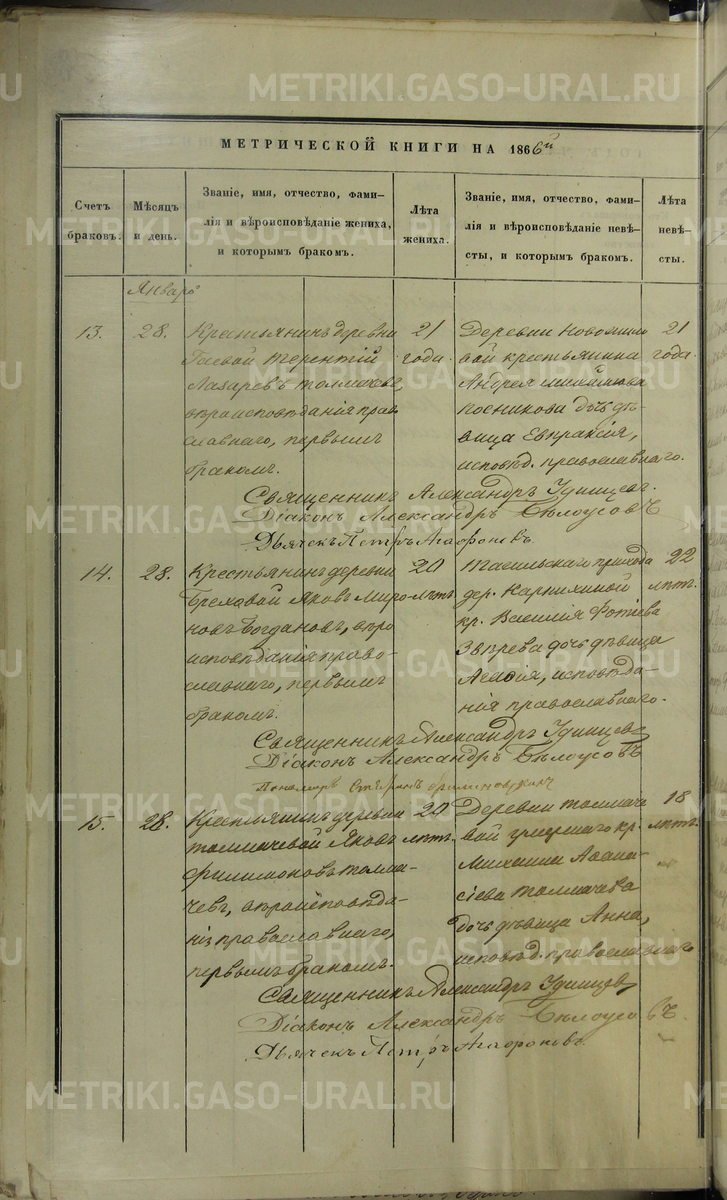 METRIKI.GASO-URAL.RU
МЕТРИЧЕСКОЙ КНИГИ НА 1866й
Счетъ браковъ.
Мѣсяцъ и день.
Званіе, имя, отчество, фами-
лія и вѣроисповѣданіе жениха,
и которымъ бракомъ.
Лѣта жениха.
Званіе, имя, отчество, фами-
лія и вѣроисповѣданіе невѣ-
сты, и которымъ бракомъ.
Лѣта невѣ-
сты.
Январь
13.
28.
Крестьянинъ деревни
Гаевой Терентій
Лазаревъ Толмачевъ,
вѣроисповѣданія пра-
славнаго, первымъ
бракомъ.
21
года.
Деревни
вой крестьянина
Андрея Михайлова
Косникова дочь дѣ-
вица Евпраксія,
исповѣд. православнаго.
21
года.
Священникъ Александръ Удинцев.
Діаконъ Александръ Бѣлоусовъ
Дьячекъ Петръ Агафоновъ.
14.
28.
Крестьянинъ деревни
Бреховой Яковъ Миро-
новъ Богдановъ, вѣро
исповѣданія право-
славнаго, первымъ
бракомъ.
20
лѣтъ.
Тагильскаго прихода
дер. Карпихиной
кр. Василія Фотіева
Звѣрева дочь дѣвица
исповѣда-
нія православнаго.
22
лѣтъ.
Священникъ Александръ Удинцев
Діаконъ Александръ Бѣлоусовъ
Пономарь Стефанъ
15.
28.
Крестьянинъ деревни
Толмачевой Яковъ
Филимоновъ Толма-
чевъ, вѣроисповѣда-
нія православнаго,
первымъ бракомъ.
20
лѣтъ.
Деревни Толмаче
вой умершаго кр.
Михаила Аѳана-
сіева Толмачева
дочь дѣвица Анна,
исповѣд. православнаго
18
лѣтъ.
Священникъ Александръ Удинцев
Діаконъ Александръ Бѣлоусовъ.
Дьячекъ Петръ Агафоновъ.